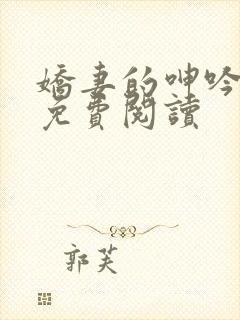 嬌妻的呻吟
免費閱讀
郭芙